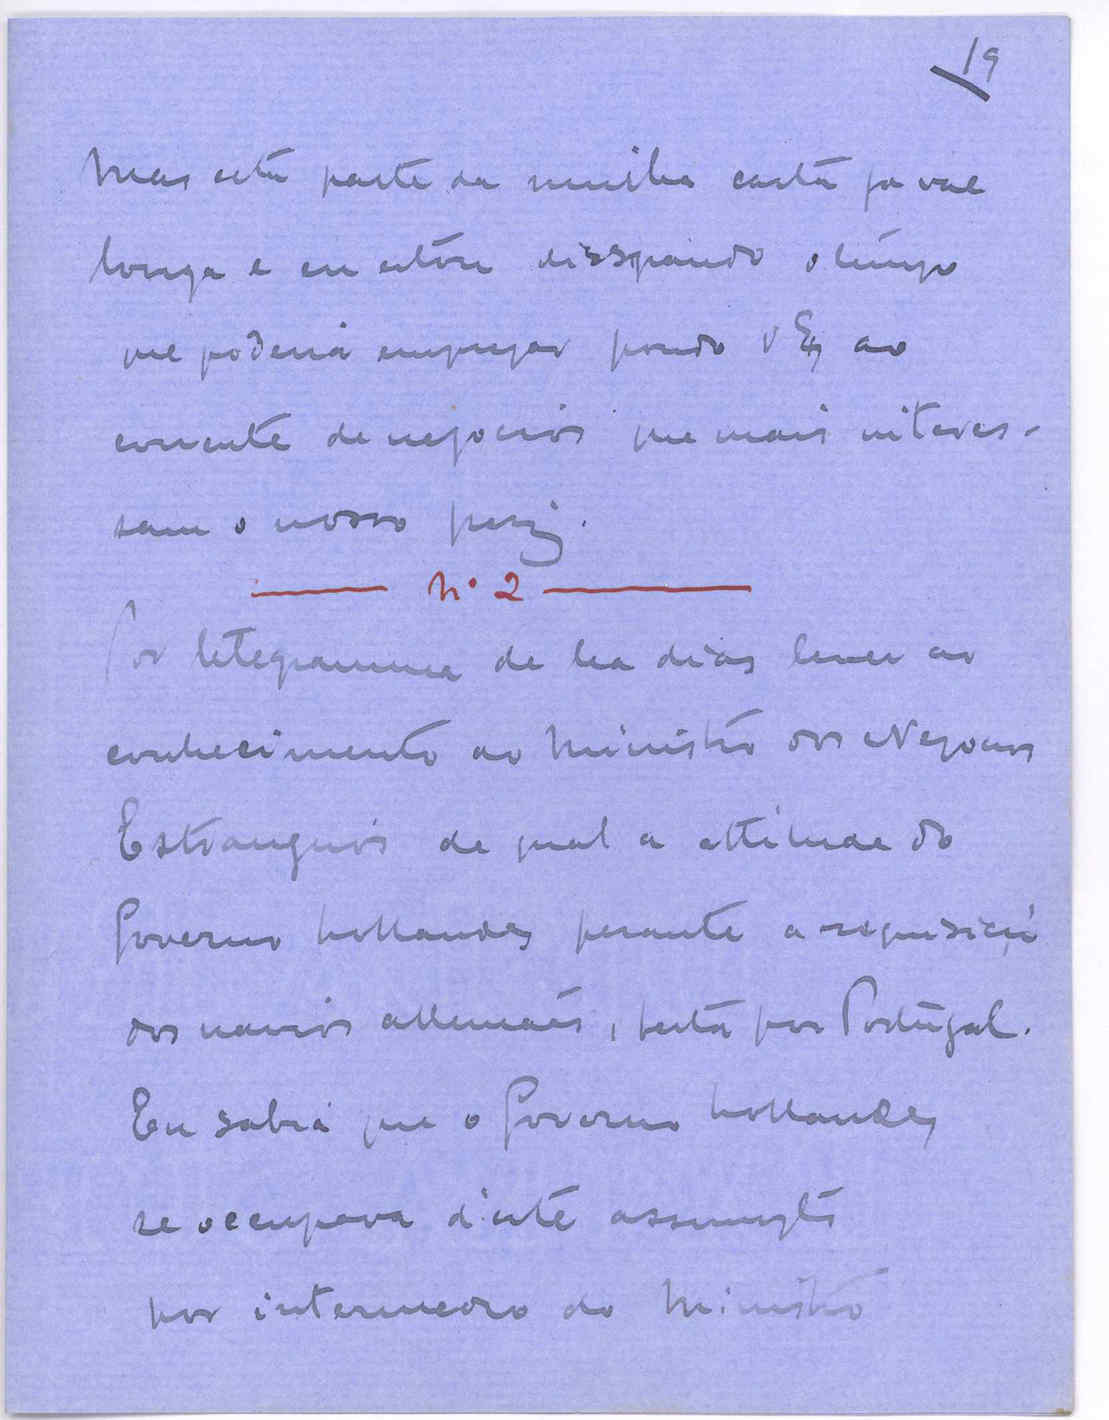 19
Mas esta parte da minha carta ja vae
longa e eu estou dissipando o tempo
que poderia empregar pondo V Ex ao
corrente de negocios que mais interes-
sam o nosso paiz.
Nº 2
Por teletegramma de ha dias levei ao
conhecimento do Ministro dos Negocios
Estrangeiros de qual a attitude do
Governo hollandez perante a requisição
dos navios allemães, feita por Portugal.
Eu sabia que o Governo hollandez
se occupava d'este assumpto
por intermedio do Ministro